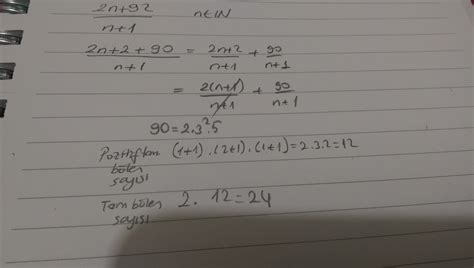 2n+92 / n+1   n∈IN
2n+2+90 / n+1 = 2n+2 / n+1 + 90 / n+1
= 2(n+1) / n+1 + 90 / n+1
90=2.3².5
Pozitif tam bölen sayısı (1+1).(2+1).(1+1)=2.3.2=12
Tam bölen sayısı 2.12=24